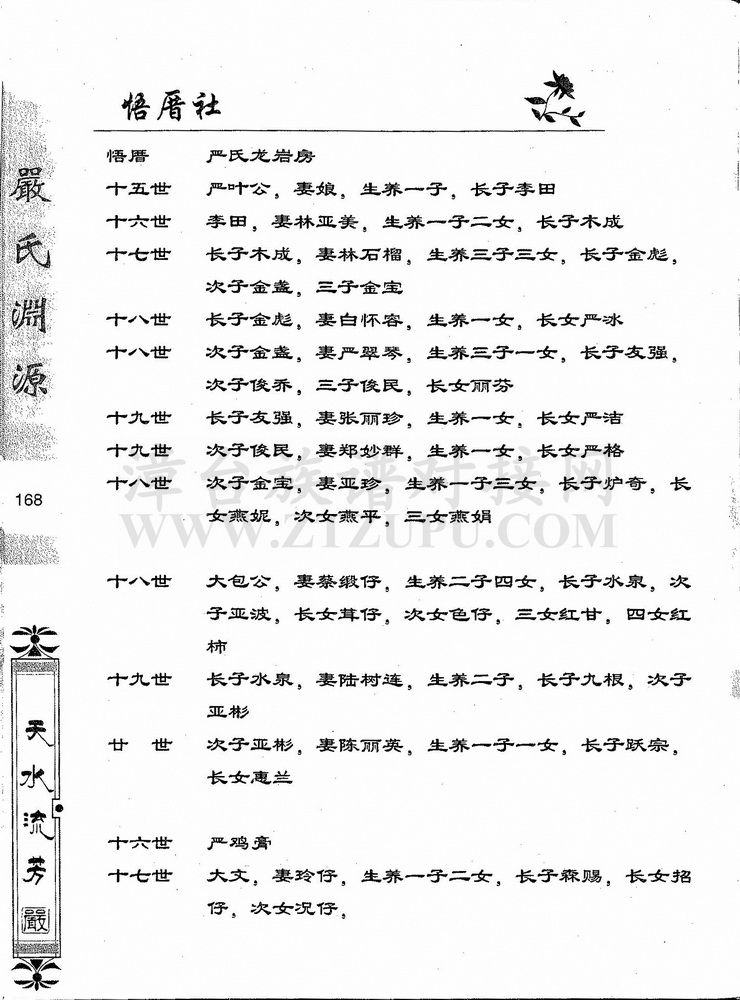 悟厝社
悟厝 严氏龙岩房
十五世 严叶公，妻娘，生养一子，长子李田
十六世 李田，妻林亚美，生养一子二女，长子木成
十七世 长子木成，妻林石榴，生养三子三女，长子金彪，
次子金盏，三子金宝
十八世 长子金彪，妻白怀容，生养一女，长女严冰
十八世 次子金盏，妻严翠琴，生养三子一女，长子友强，
次子俊乔，三子俊民，长女丽芬
十九世 长子友强，妻张丽珍，生养一女，长女严洁
十九世 次子俊民，妻郑妙群，生养一女，长女严格
十八世 次子金宝，妻亚珍，生养一子三女，长子炉奇，长
女燕妮，次女燕平，三女燕娟
十八世 大包公，妻蔡缎仔，生养二子四女，长子水泉，次
子亚波，长女茸仔，次女色仔，三女红甘，四女红
柿
十九世 长子水泉，妻陆树连，生养二子，长子九根，次子
亚彬
廿世 次子亚彬，妻陈丽英，生养一子一女，长子跃宗，
长女惠兰
十六世 严鸡膏
十七世 大文，妻玲仔，生养一子二女，长子森赐，长女招
仔，次女况仔，
嚴氏淵源
168
天水流芳
嚴
漳台族谱对接网
WWW.ZTZUPU.COM